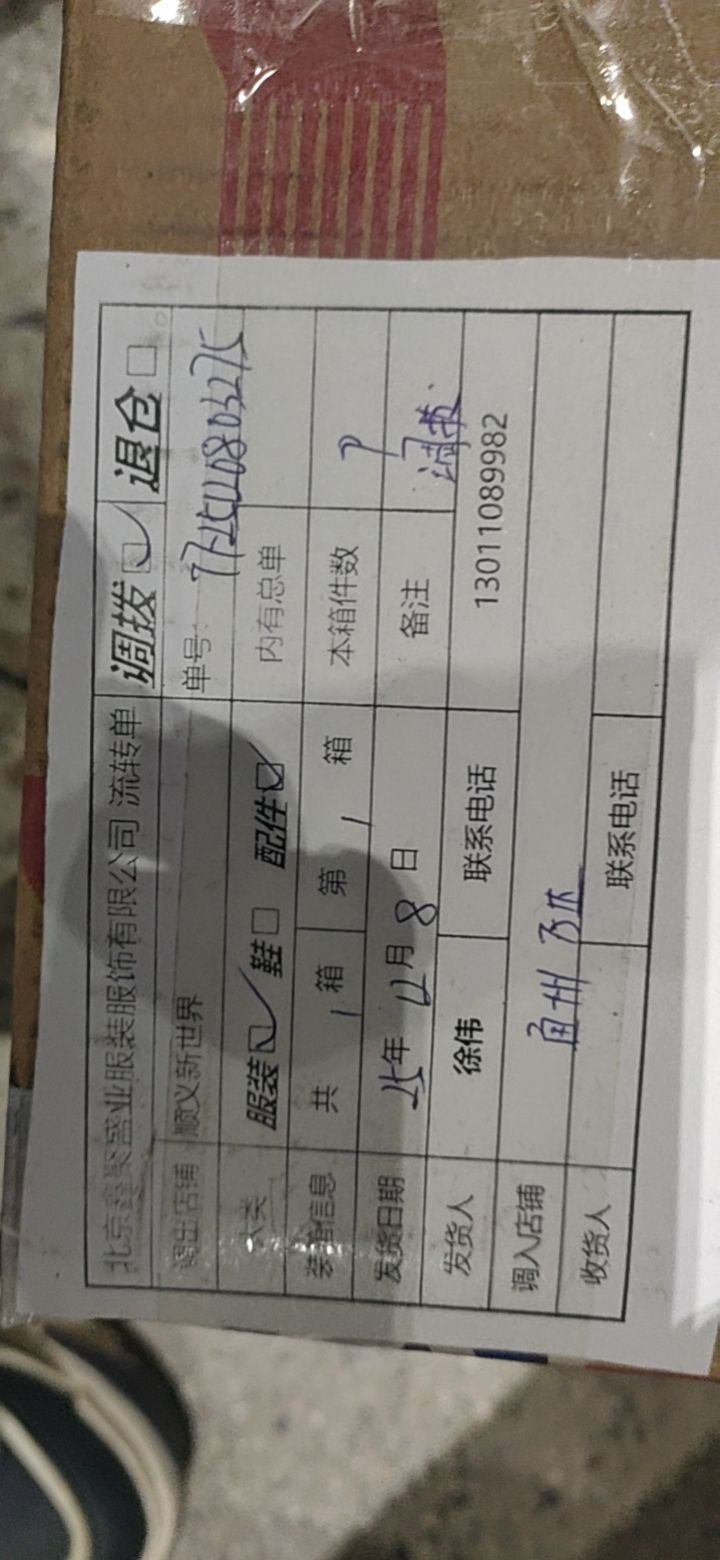 北京鑫聚盛业服装服饰有限公司 流转单 调拨 退仓
调出店铺 顺义新世界 单号:
大类 服装 鞋 配件 内有总单
装箱信息 共 1 箱 第 1 箱 本箱件数
发货日期 25年 12月 8日 备注 调拨
发货人 徐伟 联系电话 13011089982
调入店铺
收货人 联系电话